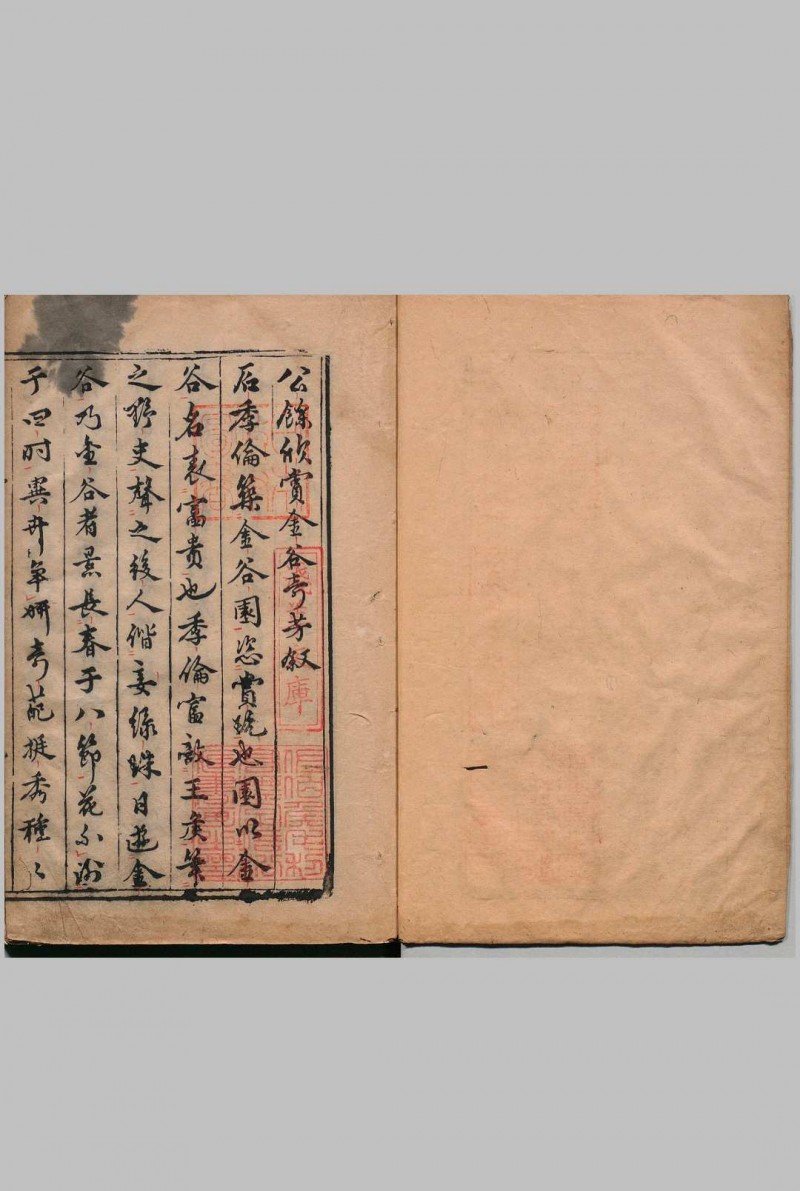 公餘欣賞金谷奇芳叙
石季倫築金谷園恣賞玩也園以金
谷名表富貴也季倫富敵王侯筆
之野史聲之後人偕妾綠珠日遊金
谷乃金谷者景長春于八節花不謝
于四时異卉争妍奇葩挺秀種〻
庫
一